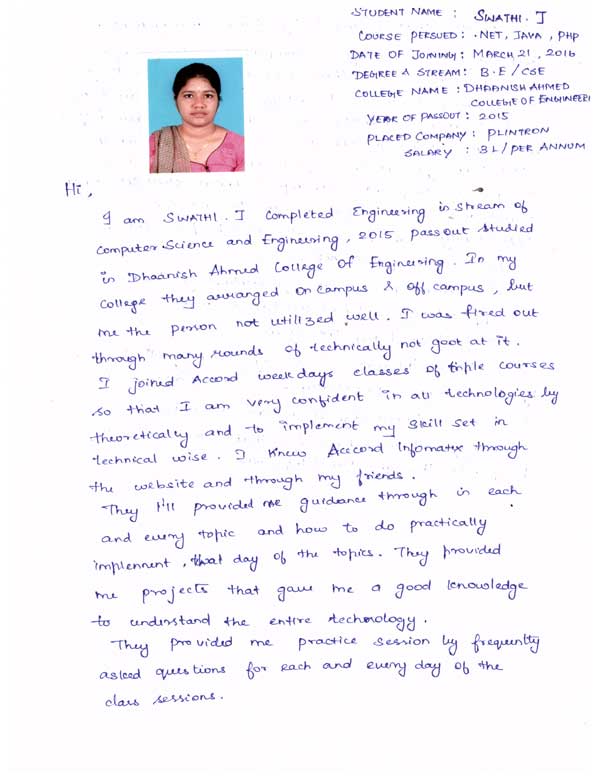 STUDENT NAME : SWATHI. J
COURSE PERSUED : .NET, JAVA, PHP
DATE OF JOINING : MARCH 21, 2016
DEGREE & STREAM : B.E / CSE
COLLEGE NAME : DHAANISH AHMED
COLLEGE OF ENGINEERI
YEAR OF PASSOUT : 2015
PLACED COMPANY : PLINTRON
SALARY : 3L/PER ANNUM
Hi,
I am SWATHI. I completed Engineering in stream of
Computer Science and Engineering, 2015 passout studied
in Dhaanish Ahmed College Of Engineering. In my
college they arranged On campus & Off campus, but
me the person not utilized well. I was fired out
through many rounds of technically not goot at it.
I joined Accord weekdays classes of triple courses
so that I am very confident in all technologies by
theoretically and to implement my skill set in
technical wise. I knew Acccord Infomatix through
the website and through my friends.
They I'll provided me guidance through in each
and every topic and how to do practically
implennent, that day of the topics. They provided
me projects that gave me a good knowledge
to understand the entire technology.
They provided me practice session by frequently
asked questions for each and every day of the
class sessions.